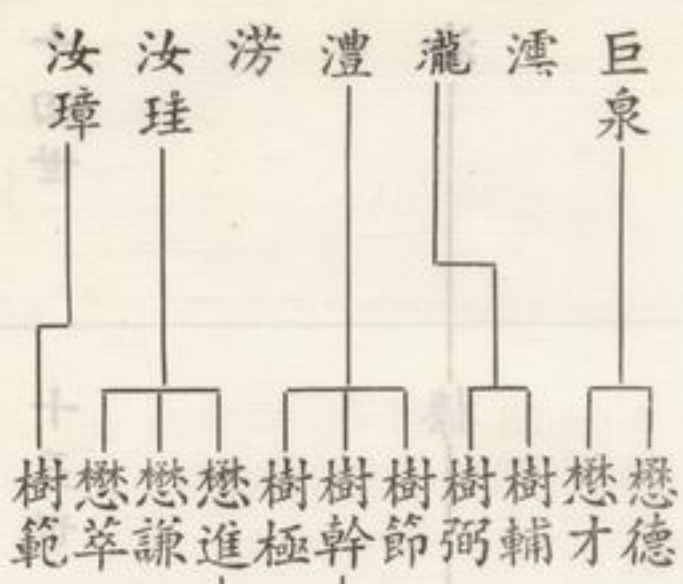 巨泉
澐
瀧
澧
淓
汝珪
汝璋
懋德
懋才
樹輔
樹弼
樹節
樹幹
樹極
懋進
懋謙
懋萃
樹範